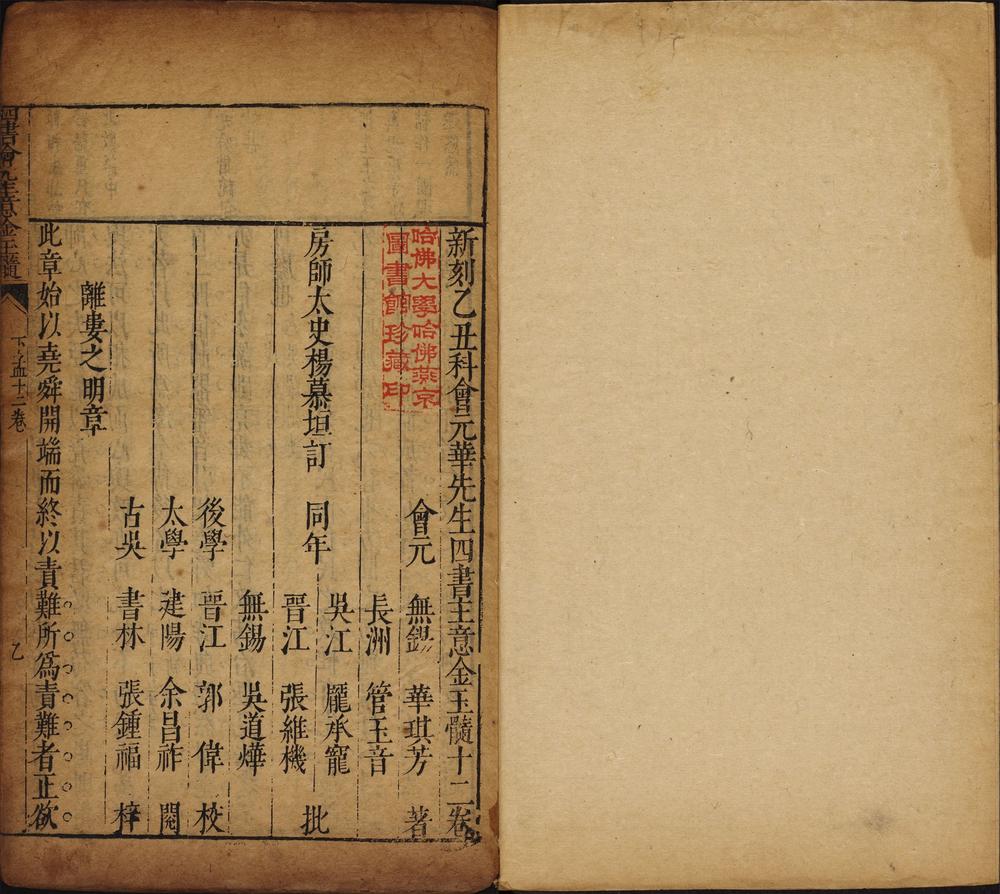 新刻乙丑科會元華先生四書主意金玉髓十二卷
會元 無錫 華琪芳 著
長洲 管玉音
房師太史楊慕垣訂 同年 吳江 龐承寵 批
晉江 張維機
無錫 吳道燁
後學 晉江 郭偉 校
太學 建陽 余昌祚 閱
古吳 書林 張鍾福 梓
離婁之明章
此章始以堯舜開端而終以責難所爲責難者正欲
四書會元主意金玉髓
下孟十二卷
乙
哈佛大學哈佛燕京
圖書館珍藏印